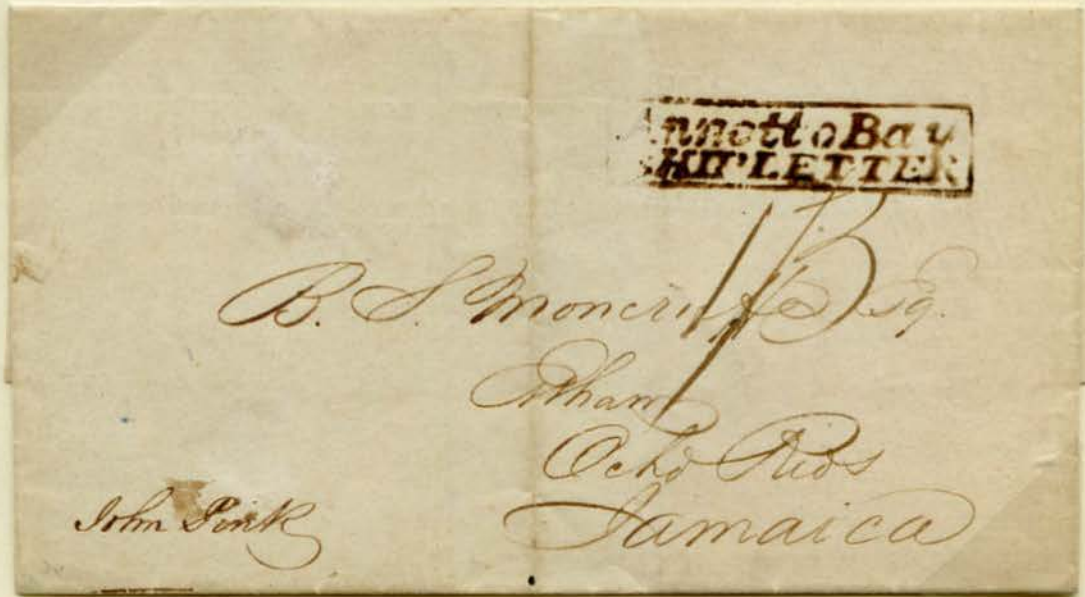 Annotto Bay
SHIP LETTER
1/3
B. S. Moncrieffe Esq.
Ocho Rios
Jamaica
John Pink